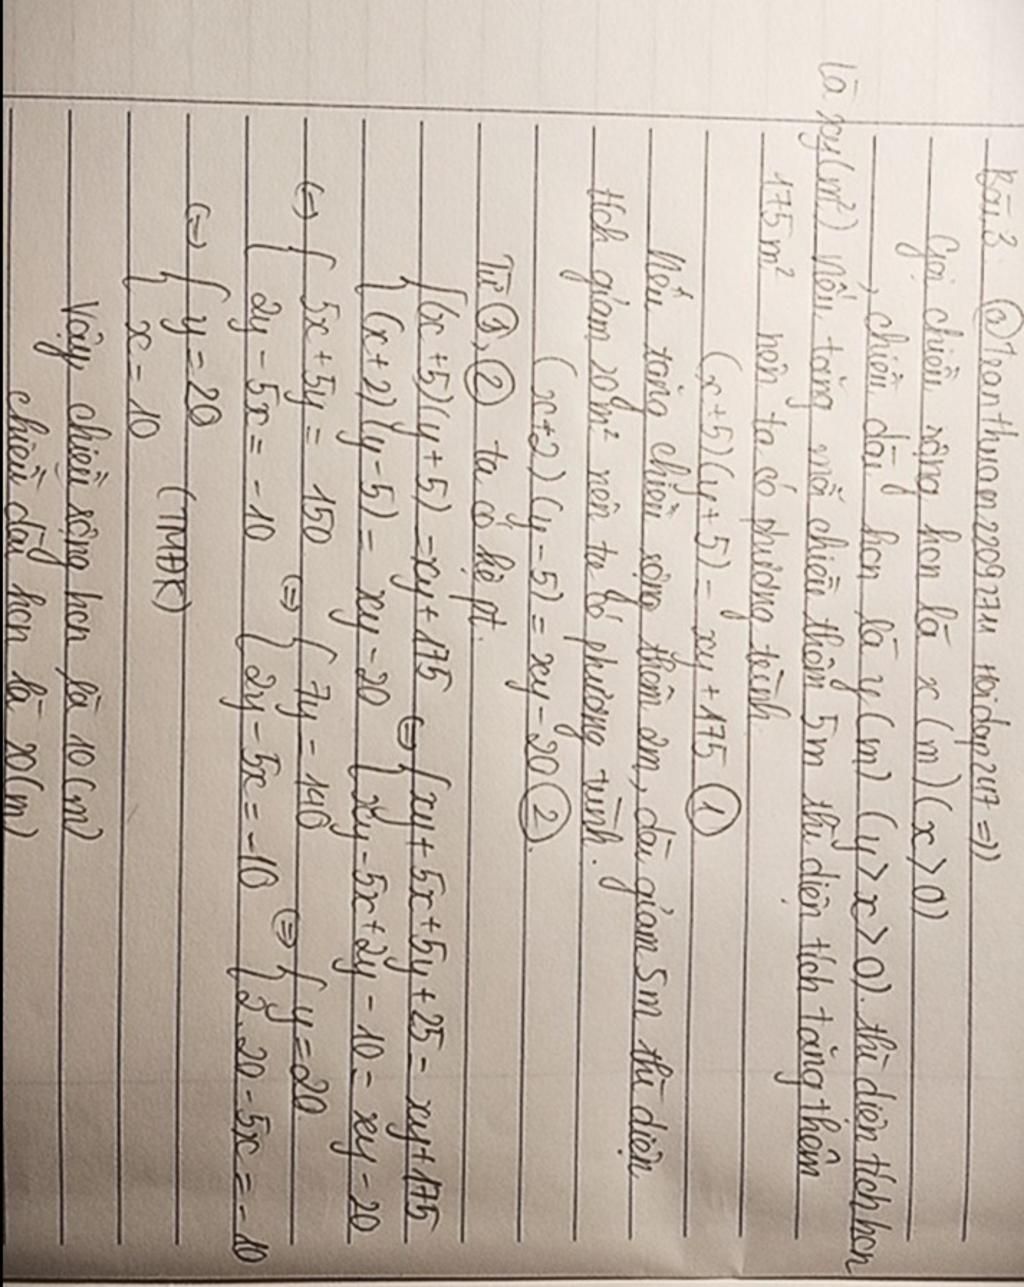 Bài 3 @Tranthuom22092711 Hoidap247 =))
Gọi chiều rộng hcn là x (m) (x > 0)
, chiều dài hcn là y (m) (y > x > 0). thì diện tích hcn
là xy (m²) nếu tăng mỗi chiều thêm 5m thì diện tích tăng thêm
175 m² nên ta có phương trình.
(x + 5)(y + 5) = xy + 175 ①
Nếu tăng chiều rộng thêm 2m, dài giảm 5m thì diện
tích giảm 20m² nên ta có phương trình.
(x+2) (y - 5) = xy - 20 ②.
Từ ①, ② ta có hệ pt.
{ (x + 5)(y + 5) = xy + 175 (=) { xy + 5x + 5y + 25 = xy + 175
(x + 2)(y - 5) = xy - 20 xy - 5x + 2y - 10 = xy - 20
(=) { 5x + 5y = 150 (=) { 7y = 140 (=) { y = 20
2y - 5x = -10 2y - 5x = -10 2.20 - 5x = -10
(=) { y = 20 (TMĐK)
x = 10
Vậy chiều rộng hcn là 10 (m)
chiều dài hcn là 20 (m)